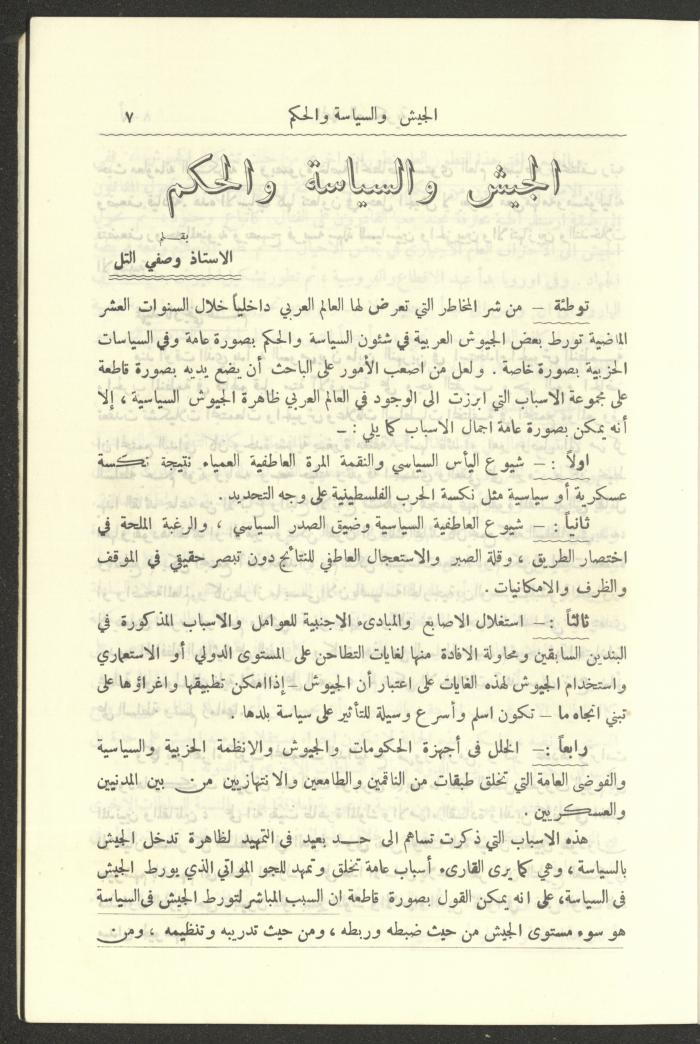 الجيش والسياسة والحكم
٧
الجيش والسياسة والحكم
بقلم
الاستاذ وصفي التل
توطئة – من شر المخاطر التي تعرض لها العالم العربي داخلياً خلال السنوات العشر
الماضية تورط بعض الجيوش العربية في شئون السياسة والحكم بصورة عامة وفي السياسات
الحزبية بصورة خاصة . ولعل من اصعب الأمور على الباحث أن يضع يديه بصورة قاطعة
على مجموعة الاسباب التي ابرزت الى الوجود في العالم العربي ظاهرة الجيوش السياسية ، إلا
أنه يمكن بصورة عامة اجمال الاسباب كما يلي : –
اولاً : – شيوع اليأس السياسي والنقمة المرة العاطفية العمياء نتيجة نكسة
عسكرية أو سياسية مثل نكسة الحرب الفلسطينية على وجه التحديد .
ثانياً : – شيوع العاطفية السياسية وضيق الصدر السياسي ، والرغبة الملحة في
اختصار الطريق ، وقلة الصبر والاستعجال العاطفي للنتائج دون تبصر حقيقي في الموقف
والظرف والامكانيات .
ثالثاً : – استغلال الاصابع والمبادىء الاجنبية للعوامل والاسباب المذكورة في
البندين السابقين ومحاولة الافادة منها لغايات التطاحن على المستوى الدولي أو الاستعماري
واستخدام الجيوش لهذه الغايات على اعتبار أن الجيوش – إذا امكن تطبيقها واغراؤها على
تبني اتجاه ما – تكون اسلم وأسرع وسيلة للتأثير على سياسة بلدها .
رابعاً : – الخلل في أجهزة الحكومات والجيوش والانظمة الحزبية والسياسية
والفوضى العامة التي تخلق طبقات من الناقمين والطامعين والانتهازيين من بين المدنيين
والعسكريين .
هذه الاسباب التي ذكرت تساهم الى حد بعيد في التمهيد لظاهرة تدخل الجيش
بالسياسة ، وهي كما يرى القارىء أسباب عامة تخلق وتمهد للجو المواتي الذي يورط الجيش
في السياسة، على انه يمكن القول بصورة قاطعة ان السبب المباشر لتورط الجيش في السياسة
هو سوء مستوى الجيش من حيث ضبطه وربطه ، ومن حيث تدريبه وتنظيمه ، ومن